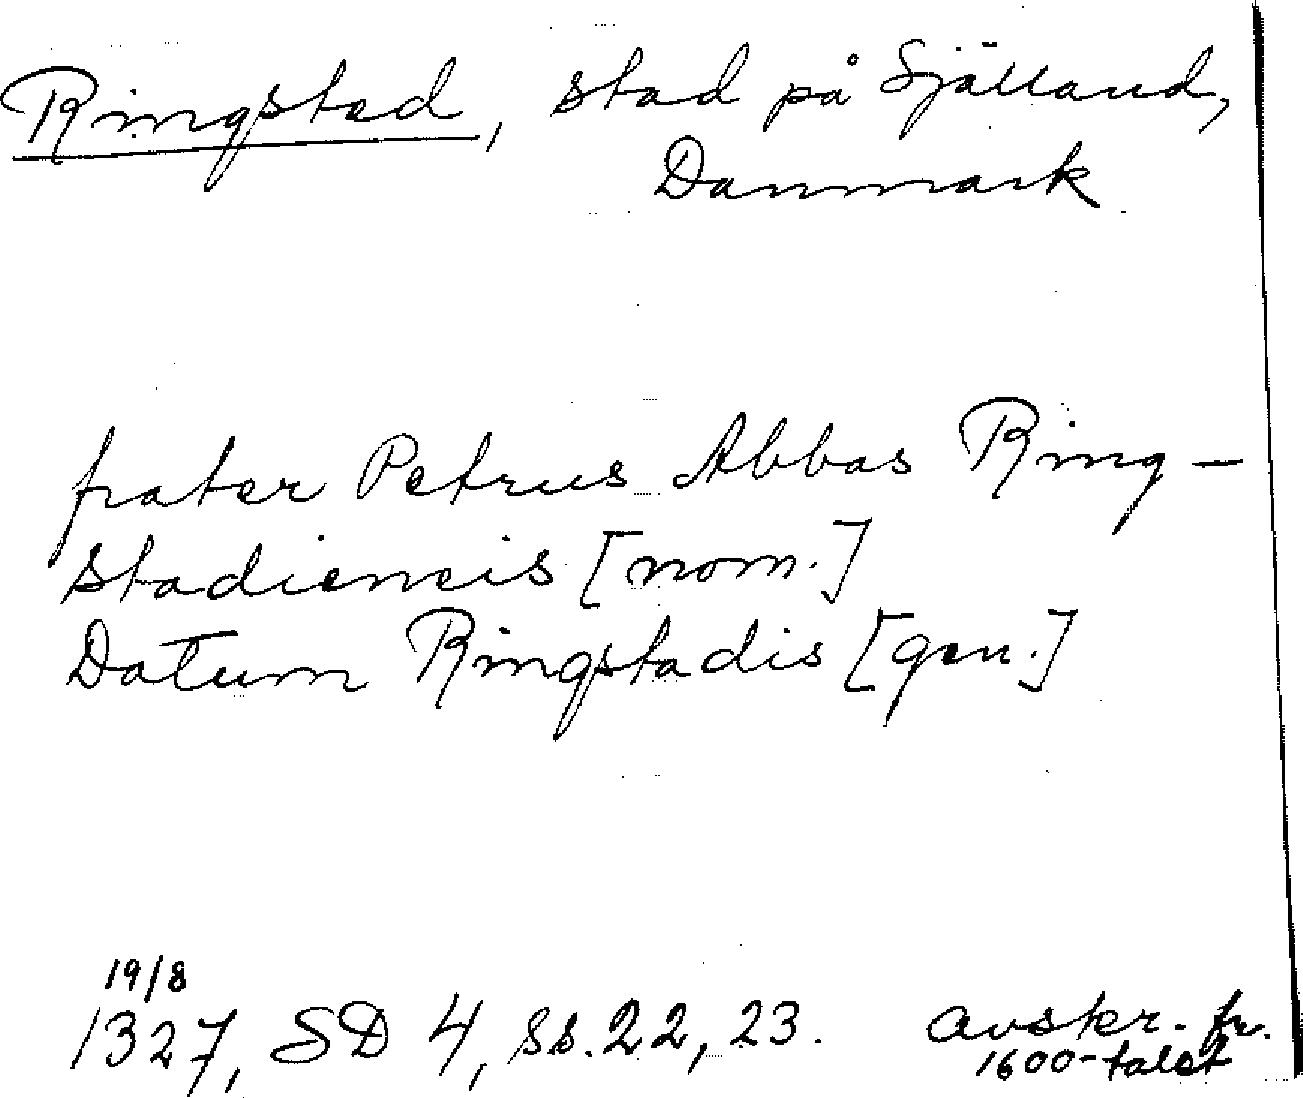 Ringsted, stad på Själland,
Danmark
frater Petrus Abbas Ring-
stadiencis [nom.]
Datum Ringstadis [gen.]
19/8
1327, SD 4, ss. 22, 23. avskr. fr.
1600-talet